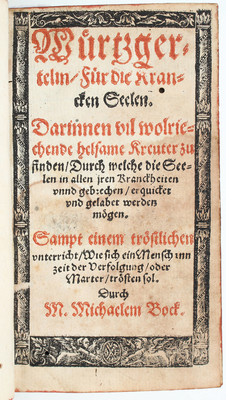 Würtzger-
telin/Für die Kran-
cken Seelen.
Darinnen vil wolrie-
chende heilsame Kreuter zu
finden/Durch welche die See-
len in allen jren Kranckheiten
vnnd gebrechen/erquicket
vnd gelabet werden
mögen.
Sampt einem tröstlichen
vnterricht/Wie sich ein Mensch inn
zeit der Verfolgung/oder
Marter/trösten sol.
Durch
M. Michaelem Bock.